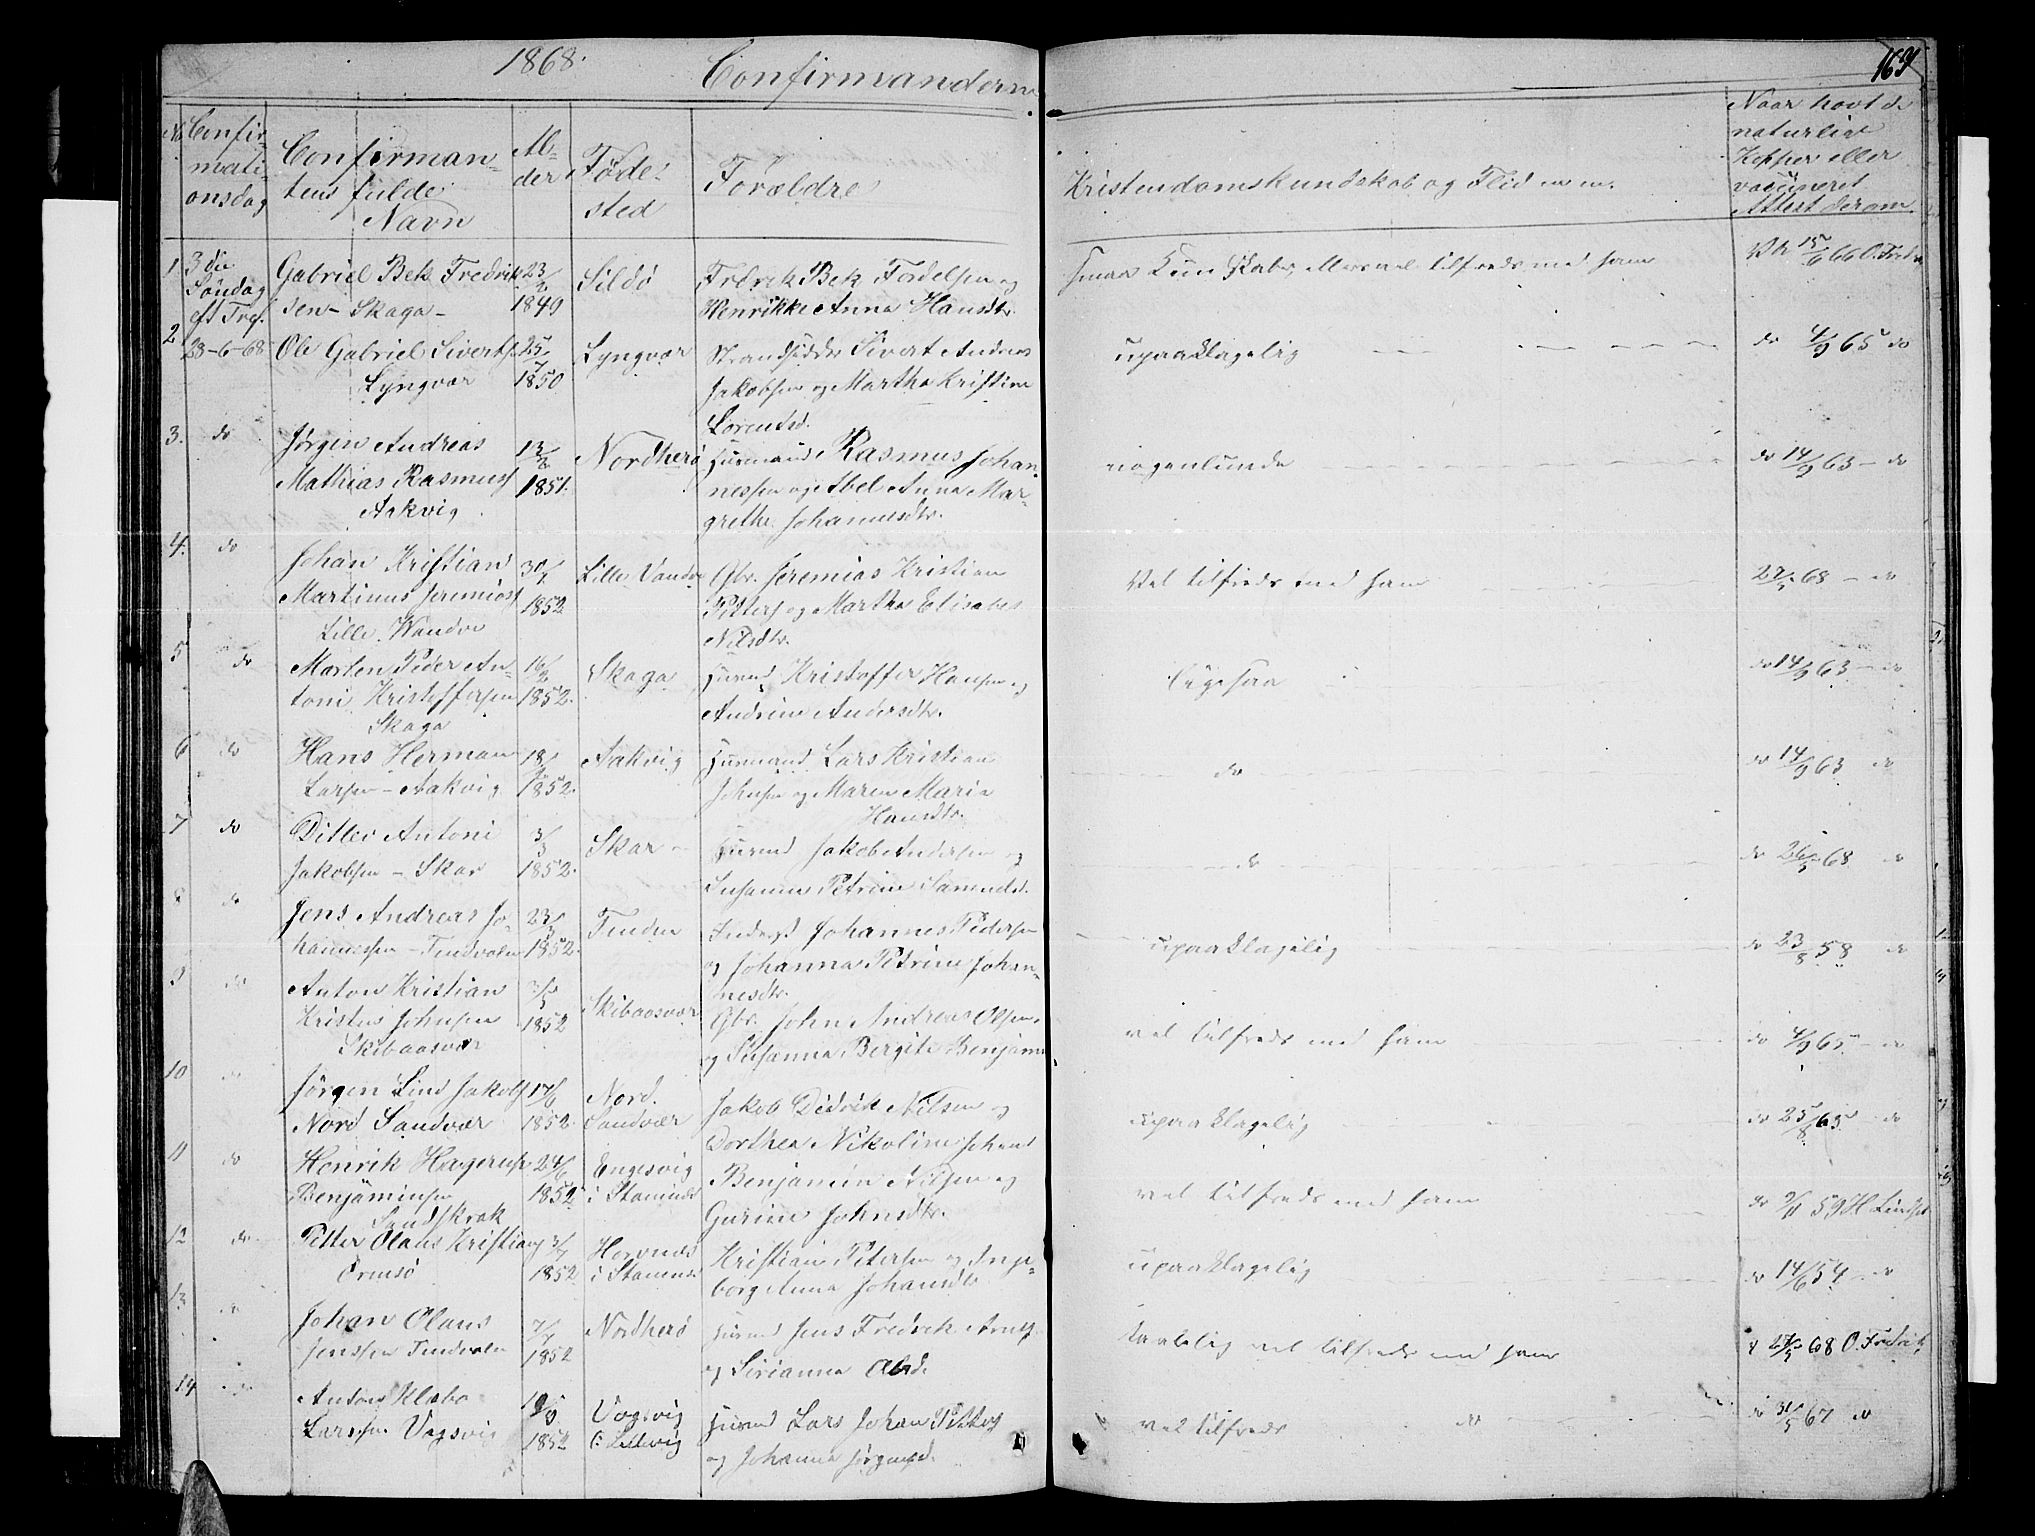 1868.
Confirmanderne
163
No
Confir-
mati-
onsdag
Confirman-
tens fulde
Navn
Al-
der
Føde-
sted
Forældre
Kristendomskundskab og Flid m. m.
Naar havt de
naturlige
Kopper eller
vaccineret
Attest derom
1
3die
Søndag
eft Tref.
Gabriel Bek Fredrik-
sen - Skaga -
23/2
1849
Sildø
Fredrik Bek Fordelsen og
Henrikke Anna Hansdtr.
Smaa Kundskaber, Meget vel tilfreds med ham
15/6 66 O. Fredr
2
28-6-68
Ole Gabriel Sivertsen
Lyngvær
25/
1850
Lyngvær
Strandsidder Sivert Andreas
Jakobsen og Martha Kristine
Lorentsd.
upaaklagelig
do 4/9 65 do
3.
do
Jørgen Andreas
Mathias Rasmuss
Aakvig
13/2
1851.
Nordherø
Husmand Rasmus Johan-
nessen og Abel Anna Mar-
grethe Johannesdtr.
nogenlunde
do 14/9 63 - do
4.
do
Johan Kristian
Martinus Jeremiass
Lille Wandve
30/1
1852
Lille Vandve
Gbr. Jeremias Kristian
Petters og Martha Elisabet
Nilsdtr.
Vel tilfreds med ham
27/5 68 - do
5
do
Morten Peder An-
toni Kristoffersen
Skaga
16/2
1852.
Skaga
Husmd Kristoffer Hansen og
Andrine Andersdtr.
ligesaa
do 14/9 63 - do
6
do
Hans Herman
Larsen - Aakvig
18/
1852.
Aakvig
Husmand Lars Kristian
Johnsen og Maren Maria
Hansdtr.
do
do 14/9 63 do
7
do
Ditlev Antoni
Jakobsen - Skar
3/3
1852.
Skar -
Husmd Jakob Andersen og
Susanna Petrine
do
do 26/5 68 do
8
do
Jens Andreas Jo-
hannessen - Tendvalen
23/
1852.
Johannes Pedersen
og Johanna Petrine Johan-
nesdtr.
upaaklagelig
do 23/8 58 do
9
do
Anton Kristian
Kristus Johnsen
Skibaasvær
1852
Skibaasvær
Gbr. John Andreas Olsen
og Susanna Bergite Benjamin
vel tilfreds med ham
do 4/9 65 - do
10
do
Jørgen Lind Jakobs
Nord Sandvær
17/6
1852.
Nord.
Sandvær
Jakob Didrik Nilsen og
Dorthea Nikoline Johans
upaaklagelig
do 25/8 65 - do
11
do
Henrik Hagerup
Benjaminsen
Sandskrak
24/6
1852
Engesvig
i Stamnes
Benjamin Nilsen og
Gurine Johnsdtr.
vel tilfreds med ham
do 9/11 59 H Lindset
12
do
Petter Olaus Kristians
Ormsø
3/7
1852
Hornnæs
i Stamnes
Kristian Petersen og Inge-
borg Anna Johansdtr
upaaklagelig
do 14/6 54 - do
13
do
Johan Olaus
Jenssen Tendvalen
7/7
1852
Nordherø
Husmd Jens Fredrik Arnts
og Sirianna Olsd.
taalelig vel tilfreds med ham
68 O. Fredrik
14
do
Anton Klæbo
Larssen Vogsvig
1852
Vogsvig
Husmd Lars Johan Petters
og Johanna Jørgensd.
vel tilfreds do
do 31/5 67 do